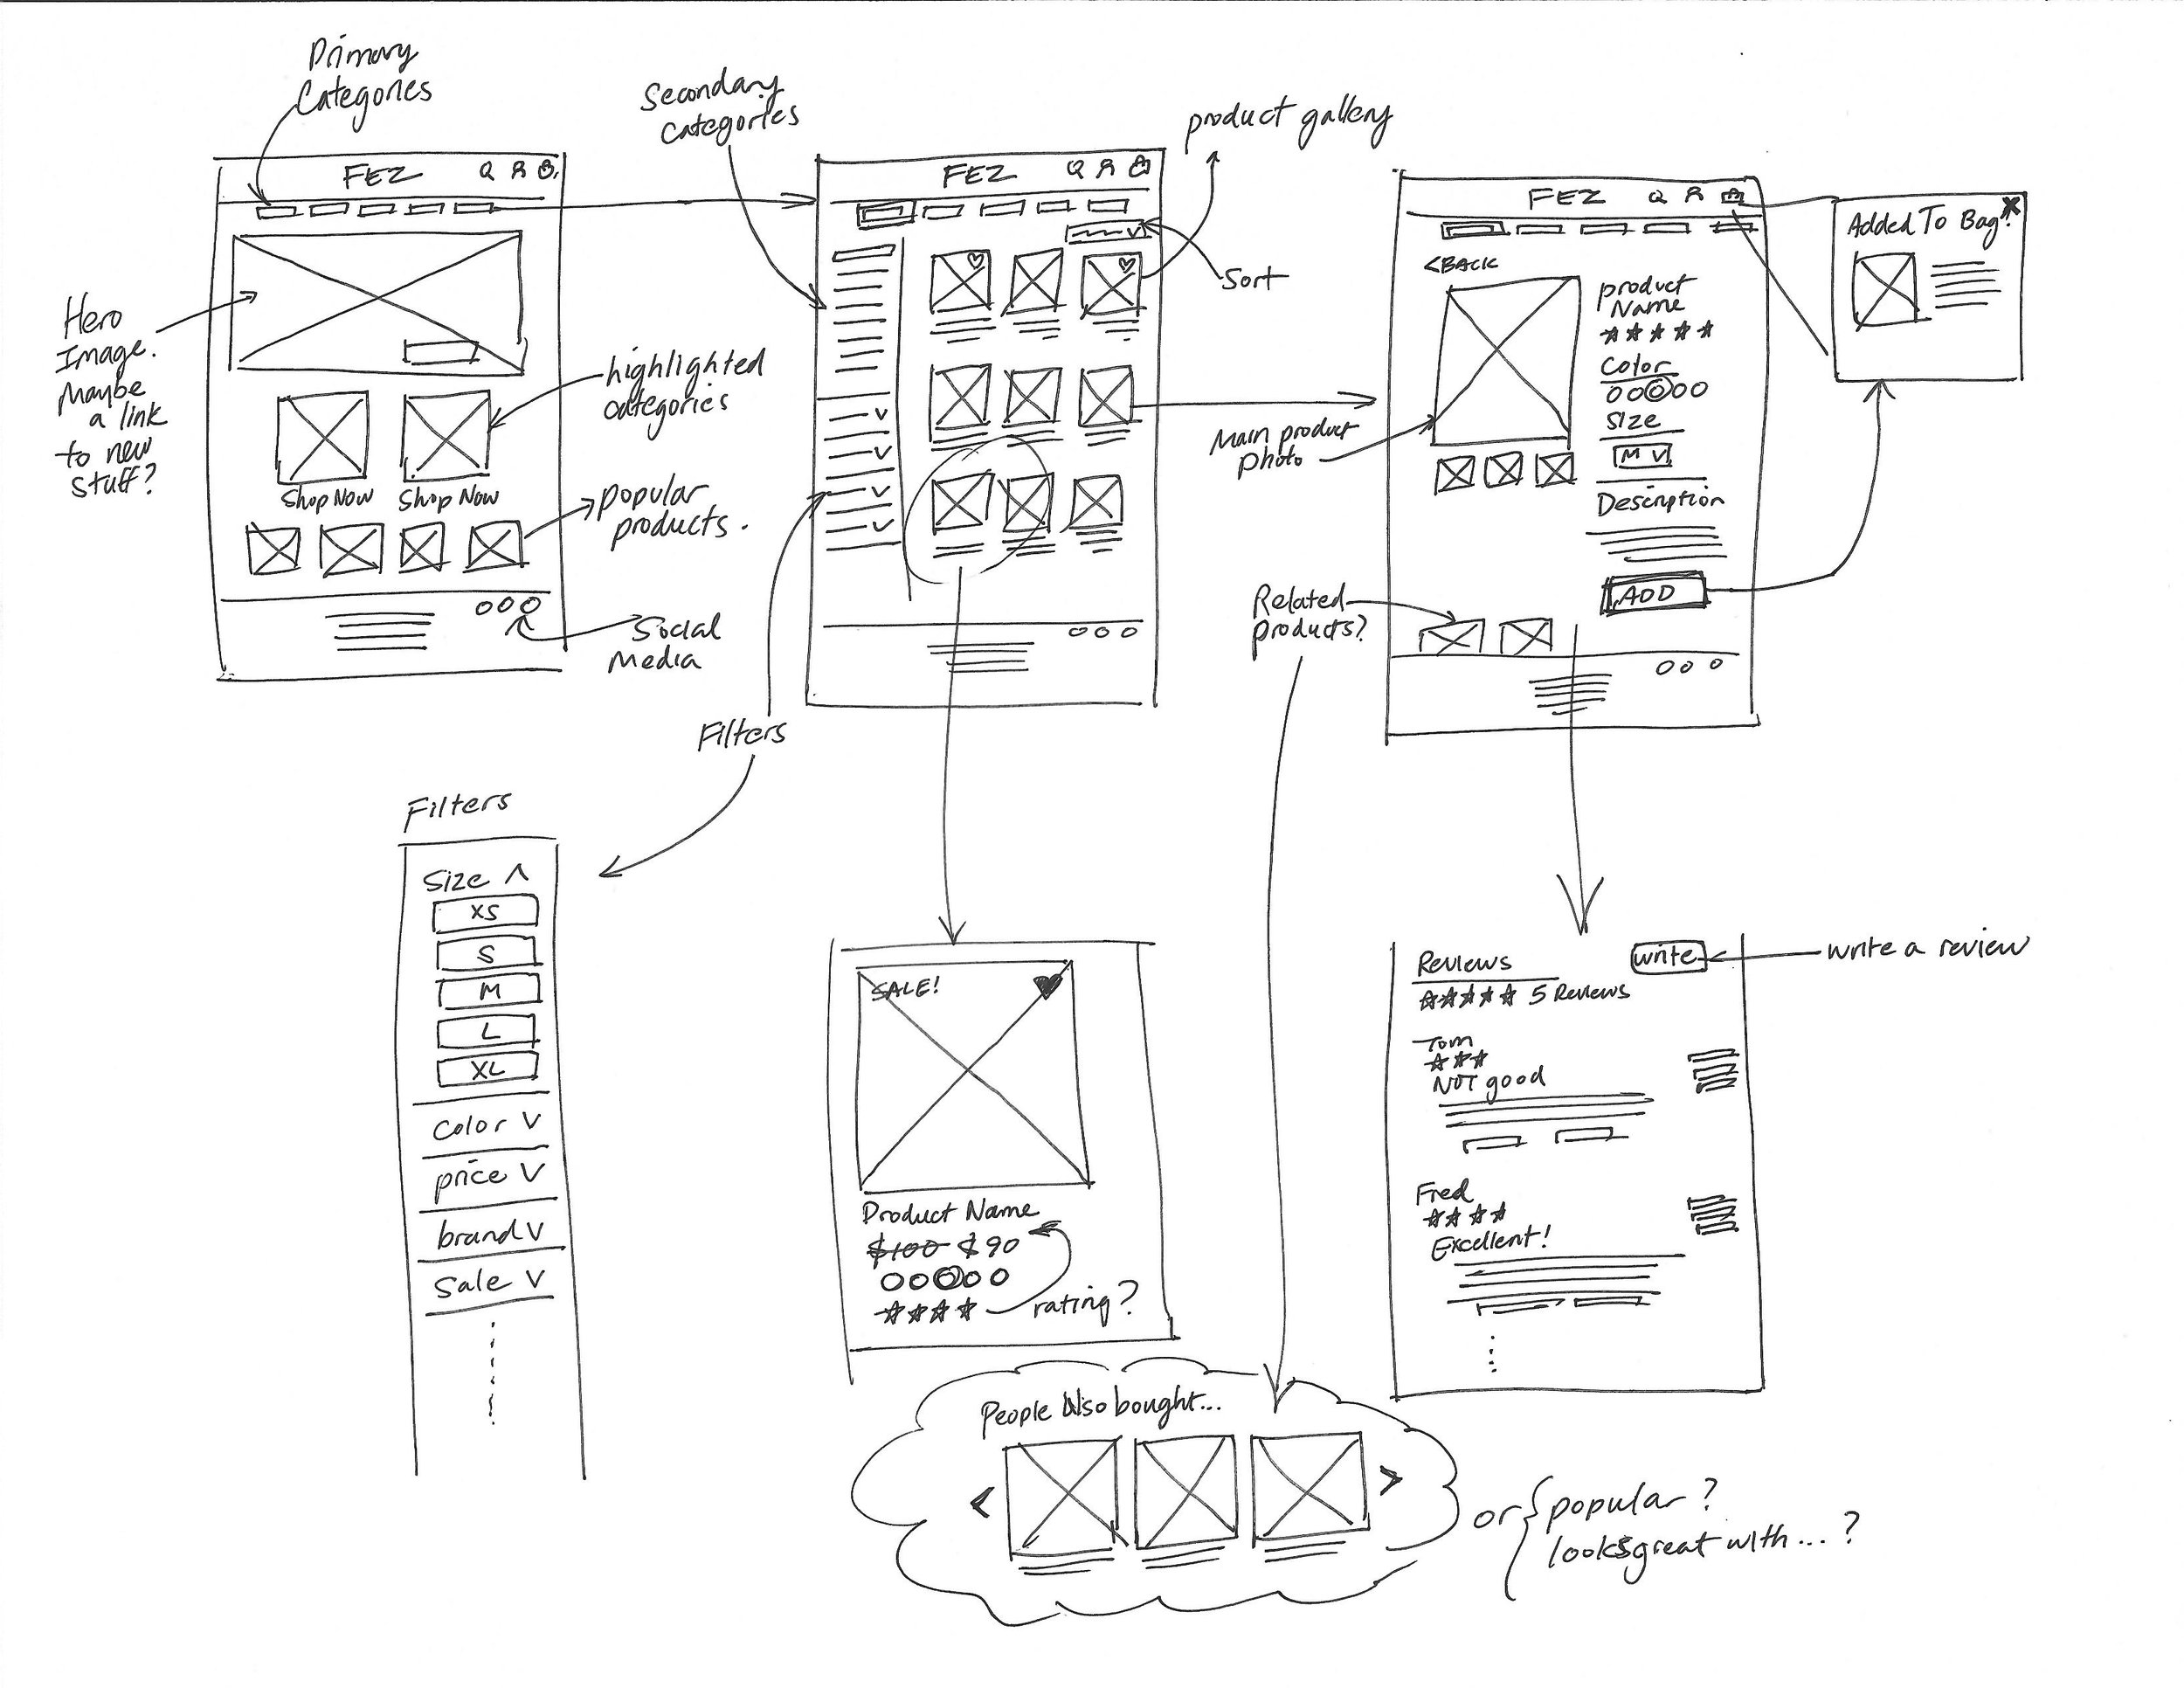 Primary
Categories
FEZ
Hero
Image.
Maybe
a link
to new
stuff?
highlighted
categories
Shop Now
Shop Now
popular
products.
Social
Media
Secondary
Categories
FEZ
product gallery
Sort
Filters
FEZ
<BACK
product
Name
Color
Size
M V
Description
ADD
Main product
photo
Related
products?
Added To Bag!
X
Filters
Size ^
XS
S
M
L
XL
color V
price V
brand V
Sale V
SALE!
Product Name
$100 $90
rating?
Reviews
write
write a review
5 Reviews
Tom
NOT good
Fred
Excellent!
People Also bought...
< >
or { popular ?
looks great with... ?